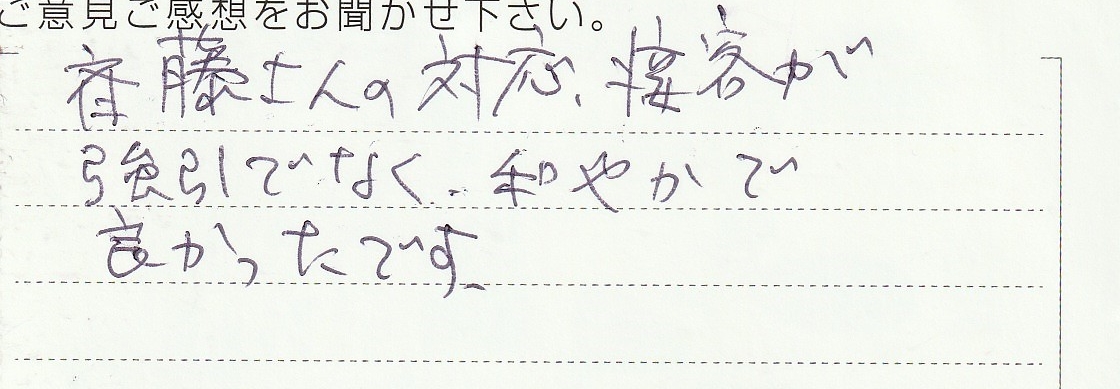 ご意見ご感想をお聞かせ下さい。
斉藤さんの対応、接客が
強引でなく、和やかで
良かったです。